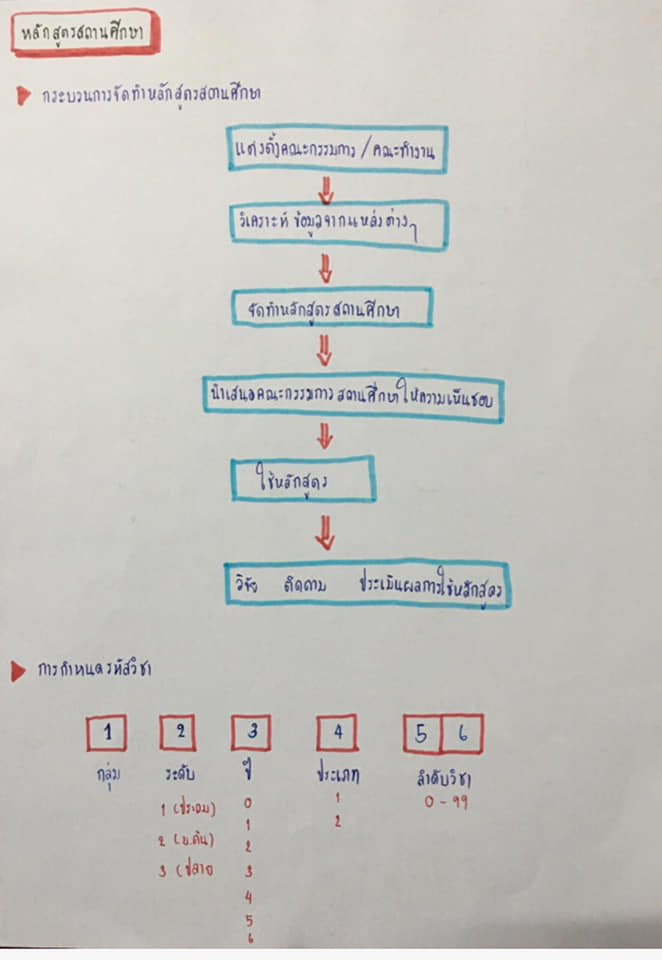 หลักสูตรสถานศึกษา
กระบวนการจัดทำหลักสูตรสถานศึกษา
แต่งตั้งคณะกรรมการ / คณะทำงาน
วิเคราะห์ ข้อมูลจากแหล่งต่างๆ
จัดทำหลักสูตรสถานศึกษา
นำเสนอคณะกรรมการสถานศึกษาให้ความเห็นชอบ
ใช้หลักสูตร
วิจัย ติดตาม ประเมินผลการใช้หลักสูตร
การกำหนดรหัสวิชา
1 2 3 4 5 6
กลุ่ม ระดับ ปี ประเภท ลำดับวิชา
1 (ประถม) 0 1 0 - 99
2 (ม.ต้น) 1 2
3 (ปลาย 2
3
4
5
6